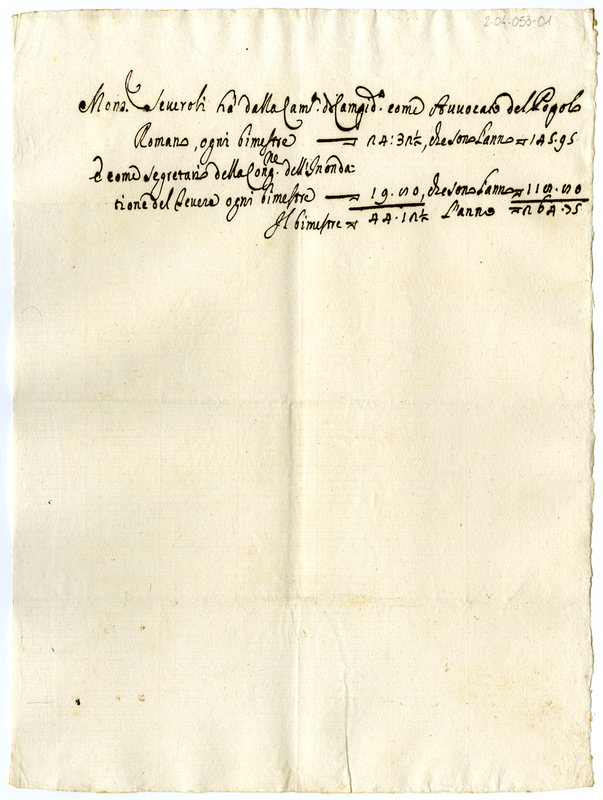 2-04-053-01
Mons.r Severoli hà dalla Cam.a di Campid.o come Avvocato del Popolo
Romano, ogni bimestre — = 24:32½, che sono l'anno = 145.95
E come segretario della Cong.ne dell'Inonda=
tione del Tevere ogni bimestre — = 19.80, che sono l'anno = 118.80
Il bimestre = 44.12½ l'anno = 264.75